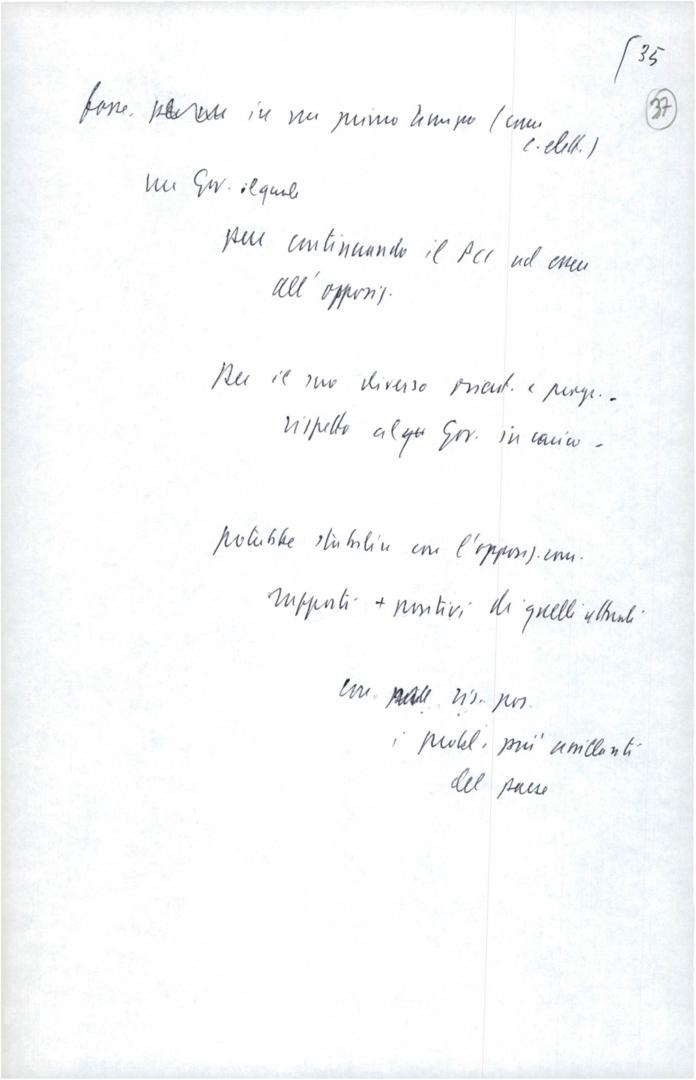 35
37
in un primo tempo (come
c. elett.)
un Gov. il quale
pur continuando il PCI ad essere
all'opposiz.
per il suo diverso e progr..
rispetto al Gov. in carica -
potrebbe stabilire con l'opposiz. com.
rapporti + positivi di quelli attuali
con ris. pos.
i probl. più assillanti
del paese